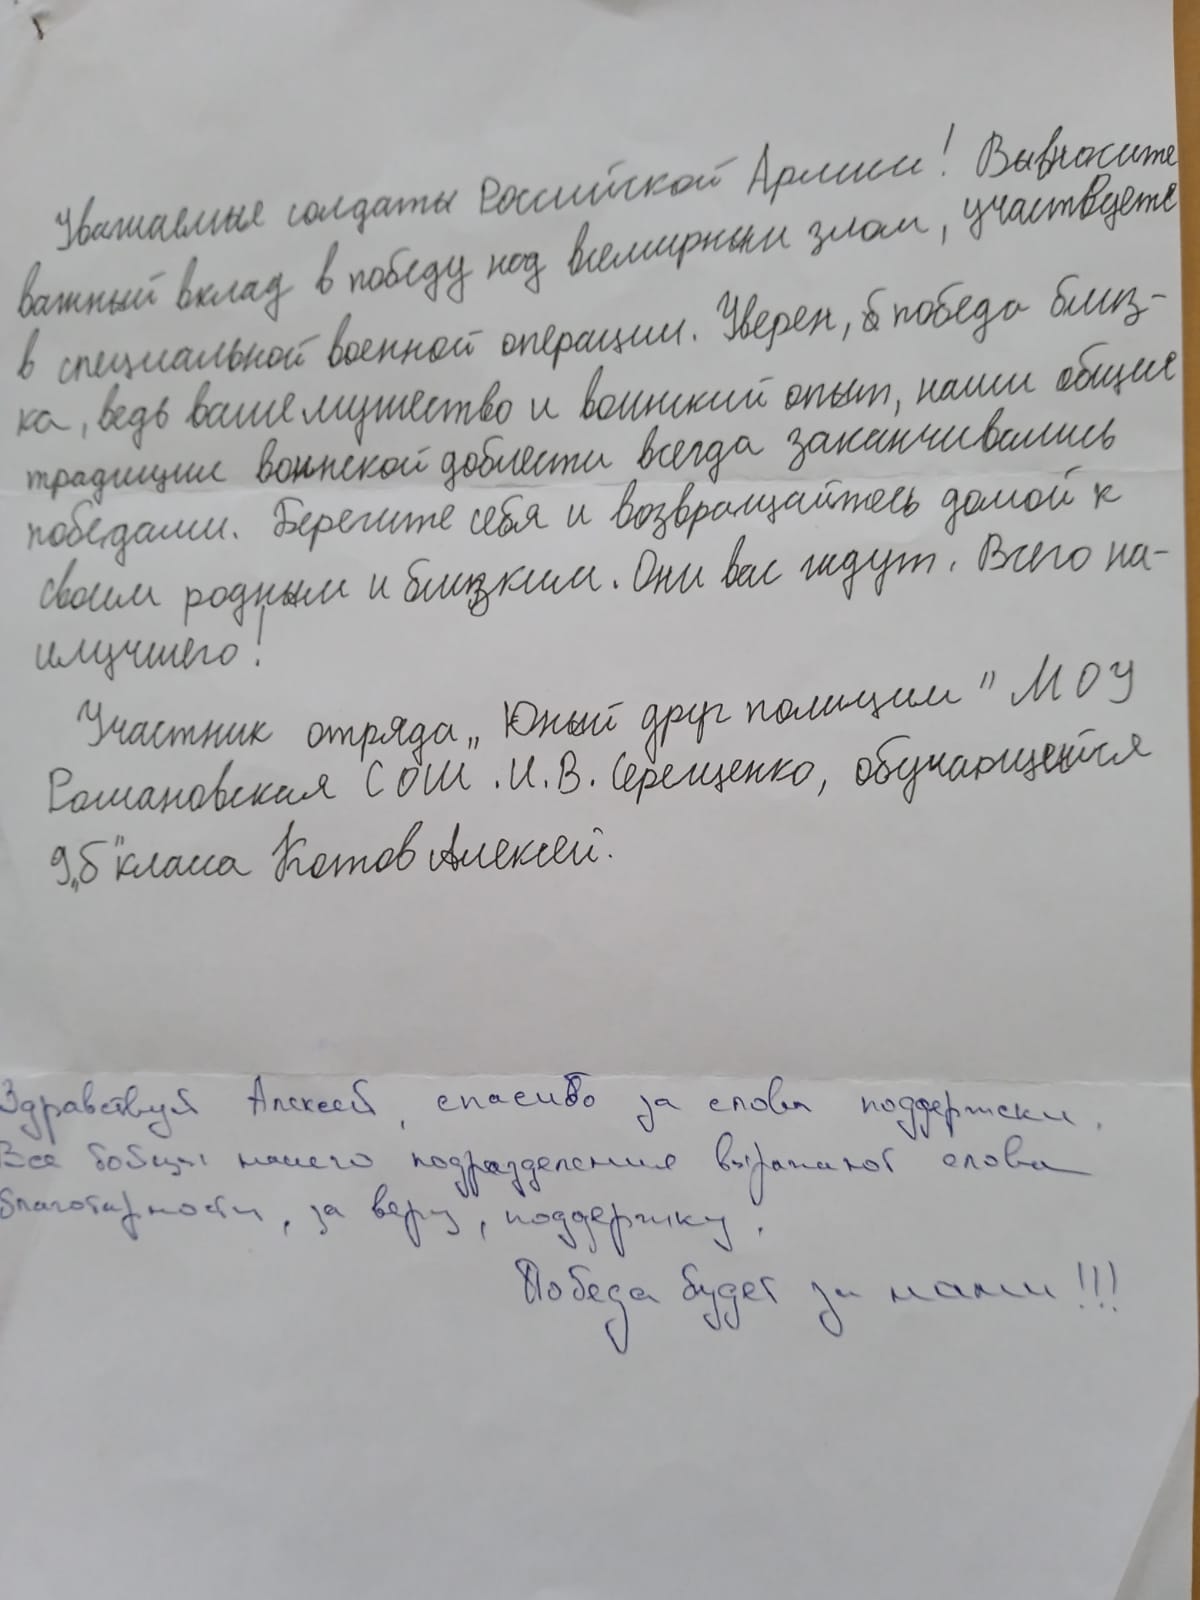 Уважаемые солдаты Российской Армии! Вы вносите
важный вклад в победу над всемирным злом, участвуете
в специальной военной операции. Уверен, победа близ-
ка, ведь ваше мужество и воинский опыт, наши общие
традиции воинской доблести всегда заканчивались
победами. Берегите себя и возвращайтесь домой к
своим родным и близким. Они вас ждут. Всего на-
илучшего!
Участник отряда „Юный друг полиции" МОУ
Романовская СОШ .И.В. Серещенко, обучающегося
9„Б" класса Котов Алексей.
Здравствуй Алексей, спасибо за слова поддержки.
Все бойцы нашего подразделения выражают слова
благодарности, за веру, поддержку.
Победа будет за нами!!!